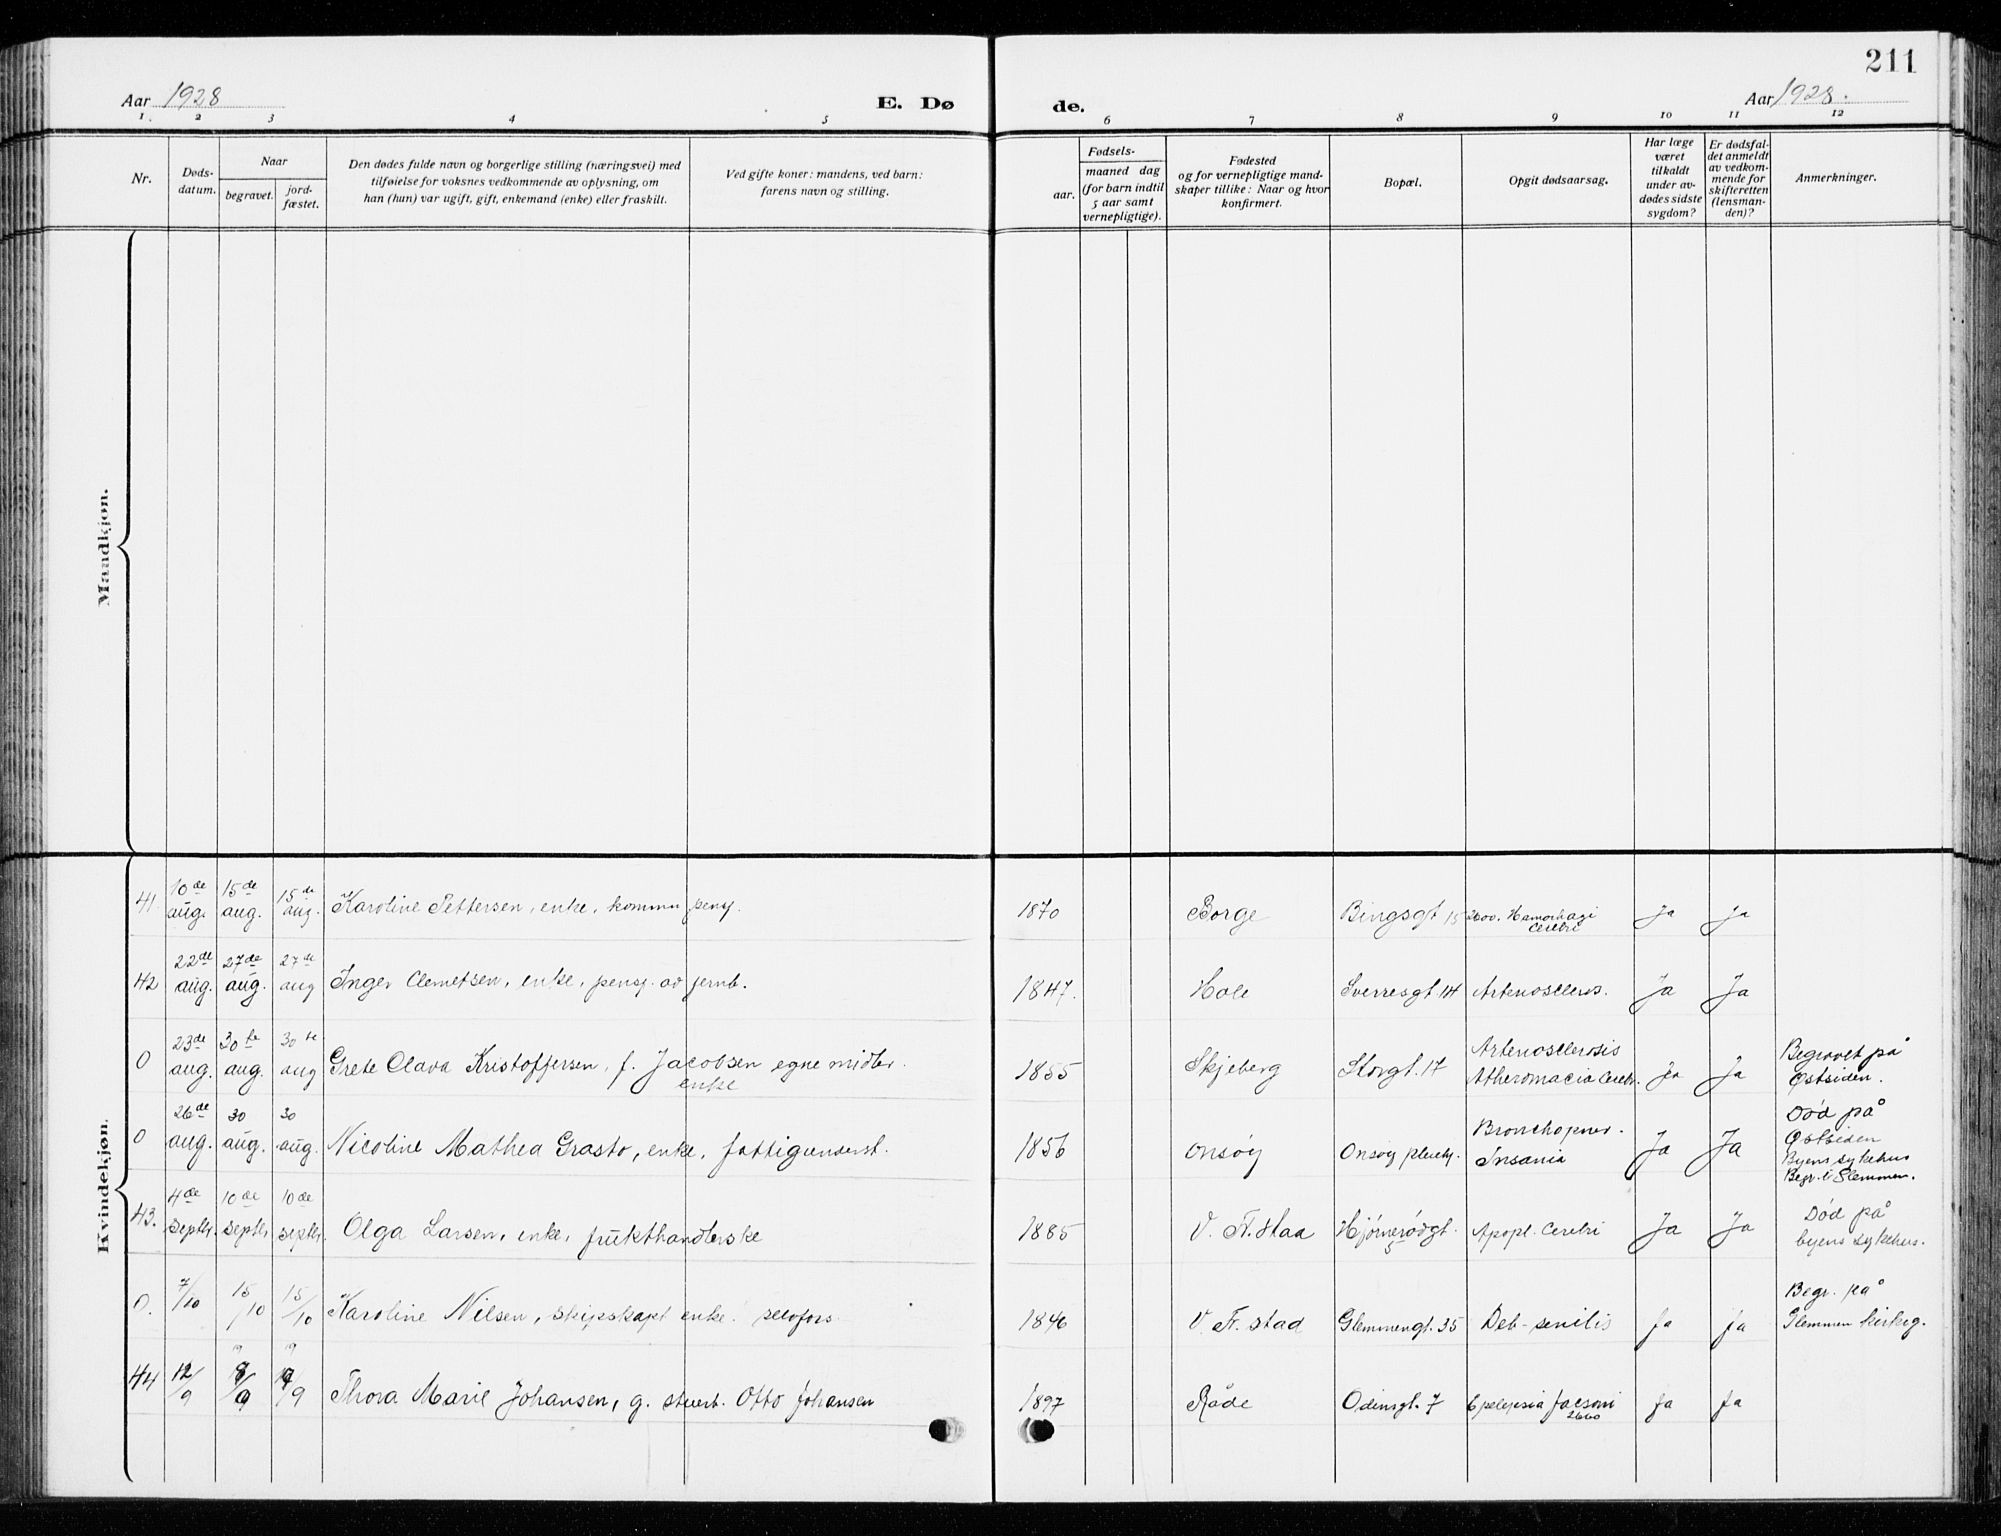 211
Aar 1928 E. Dø de. Aar 1928.
1. 2 3 4 5 6 7 8 9 10 11 12
Nr.
Døds-
datum.
Naar
begravet.
jord-
fæstet.
Den dødes fulde navn og borgerlige stilling (næringsvei) med
tilføielse for voksnes vedkommende av oplysning, om
han (hun) var ugift, gift, enkemand (enke) eller fraskilt.
Ved gifte koner: mandens, ved barn:
farens navn og stilling.
Fødsels-
aar.
maaned dag
(for barn indtil
5 aar samt
vernepligtige).
Fødested
og for vernepligtige mand-
skaper tillike: Naar og hvor
konfirmert.
Bopæl.
Opgit dødsaarsag.
Har læge
været
tilkaldt
under av-
dødes sidste
sygdom?
Er dødsfal-
det anmeldt
av vedkom-
mende for
skifteretten
(lensman-
den)?
Anmerkninger.
Mandkjøn.
Kvindekjøn.
10de 15de 15de
41 aug. aug. aug. Karoline Pettersen, enke, kommu pensj. 1870 Borge Bingsgt 15 Hamorhagi Ja ja
Cerebri
22de 27de 27de
42 aug. aug. aug Inger Clemetsen, enke, pensj. av jernb. 1847. Hole Sverresgt 14 Ja Ja
23de 30te 30te
0 aug. aug. aug Grete Olava Kristoffersen, f. Jacobsen egne midler. 1855 Skjeberg Storgt. 17 Ja Ja Begravet på
enke Østsiden.
26de 30 30
0 aug. aug. aug. Nicoline Mathea Grasto, enke, 1856 Onsøy Onsøy Bronchopneu. Ja Ja Død på
Insania Østsiden
Byens sykehus
Begr. i Glemmen.
4de 10de 10de
43. septbr. septbr. septbr. Olga Larsen, enke, frukthandlerske 1885 V. Fr.staa Hjørnerødgt. 5 Apopl. Cerebri Ja Ja Død på
byens sykehus.
0. 7/10 15/10 15/10 Karoline Nilsen, skipskapt enke. selvfors. 1846 V. Fr. stad Glemmengt. 35 Deb-senilis ja ja Begr. på
Glemmen kirkeg.
19 19
44 12/9 /9 /9 Thora Marie Johansen, g. stuert. Otto Johansen 1897 Råde Odinsgt. 7 Epelepsia Jacsoni ja ja
2660